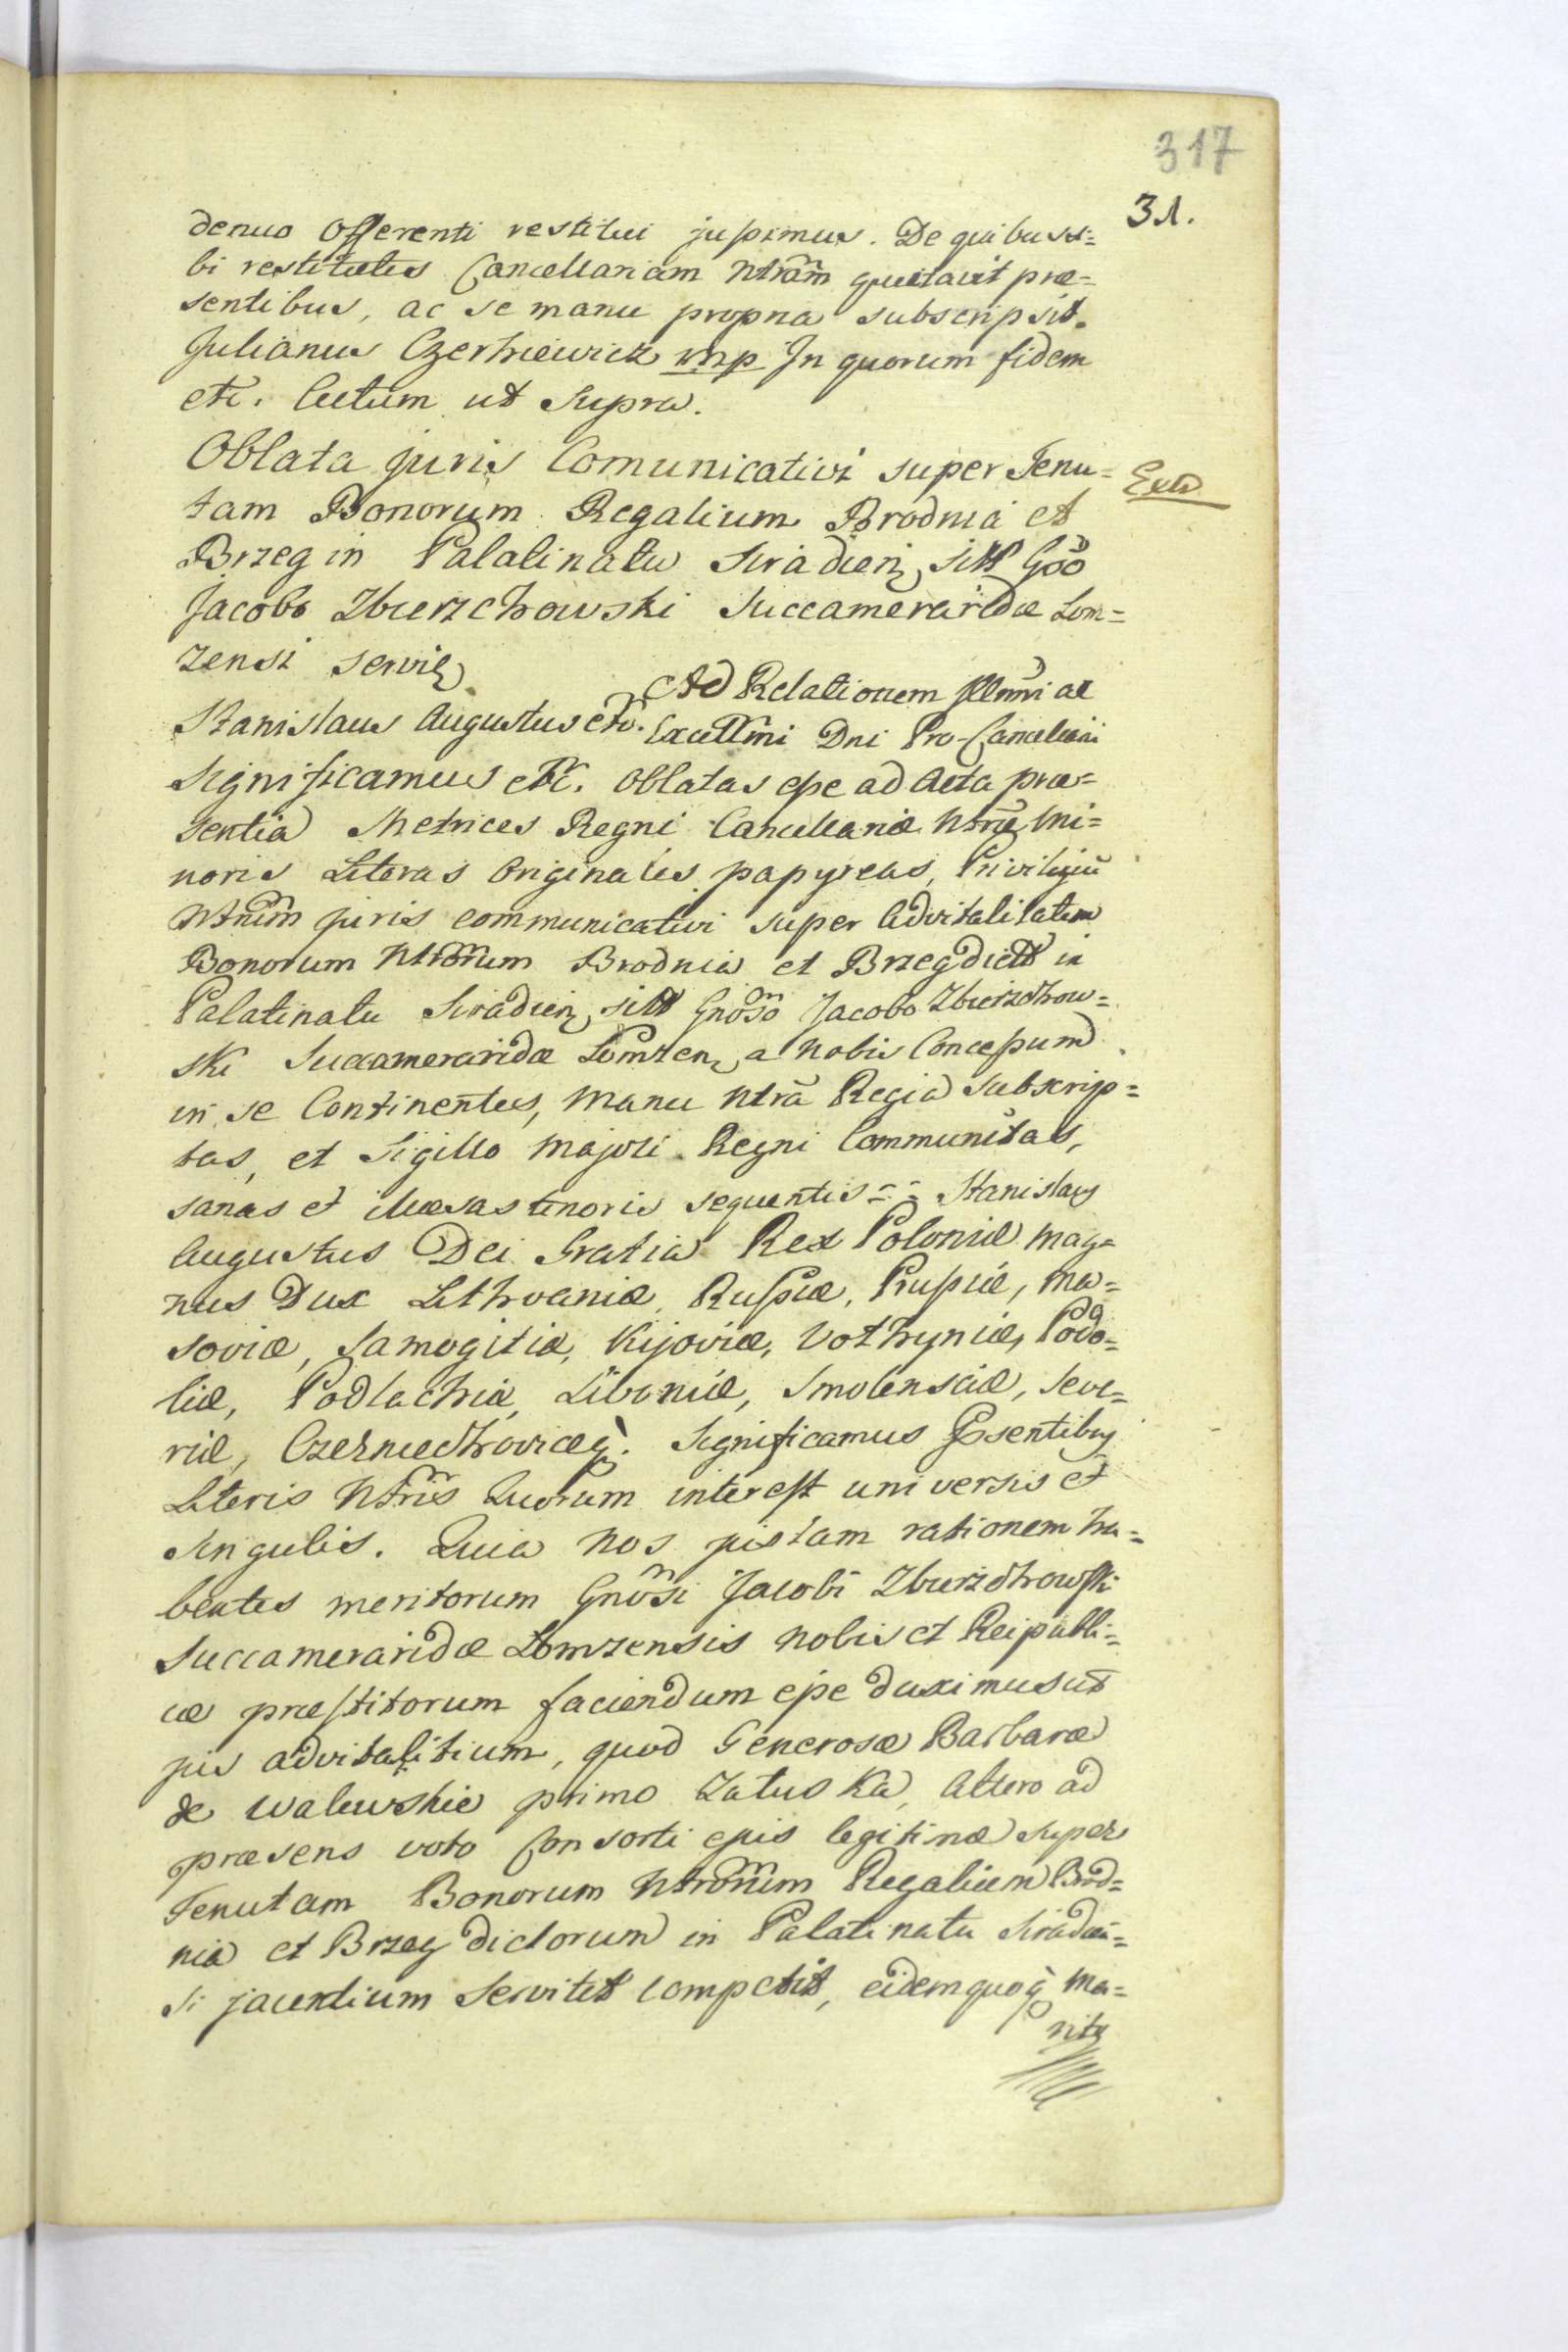 317
31.
denuo Offerenti restitui jussimus. De quibus si=
bi restitutis Cancellariam Ntram quietavit præ=
sentibus, ac se manu propria subscripsit.
Julianus Czerniewicz mp In quorum fidem
etc. Actum ut supra.
Oblata juris Comunicativi super Tenu=
tam Bonorum Regalium Brodnia et
Brzeg in Palatinatu Siradien, sitt Gōo
Jacobo Zbierzchowski Succameraridæ Lom=
zensi servien
Extd
Ad Relationem Illmi ac
Stanislaus Augustus etc. Excellmi Dni Pro-Cancellarii
Significamus etc. Oblatas esse ad Acta præ=
sentia Metrices Regni Cancellariæ Ntræ Mi=
noris Literas Originales papyreas, Privilegiū
Ntrum juris communicativi super Advitalitatem
Bonorum Ntrorum Brodnia et Brzeg dictt in
Palatinatu Siradien, sitt Gnoso Jacobo Zbierzchow=
ski Succameraridæ Lomzen, a Nobis Concessum
in se Continentes, Manu Ntra Regia Subscrip=
tas, et Sigillo Majori Regni Communitas,
sanas et illæsas tenoris sequentis = = Stanislaus
Augustus Dei Gratia Rex Poloniæ mag=
nus Dux Lithvaniæ, Russiæ, Prussiæ, Ma=
soviæ, Samogitiæ, Kijoviæ, Volhyniæ, Podo=
liæ, Podlachiæ, Livoniæ, Smolensciæ, Seve=
riæ, Czerniechoviæq. Significamus Psentibus
Literis Ntris Quorum interest universis et
Singulis. Quia Nos justam rationem ha=
bentes meritorum Gnosi Jacobi Zbierzchowski
Succameraridæ Lomzensis Nobis et Reipubli=
cæ præstitorum faciendum esse duximus ut
jus advitalitium, quod Generosæ Barbaræ
de Walewskie primo Załuska, altero ad
præsens voto Consorti ejus legitimæ super
Tenutam Bonorum Ntrorum Regalium Brod=
nia et Brzeg dictorum in Palatinatu Siradien=
si jacentium Servitet competit, eidem quoq Ma=
rito